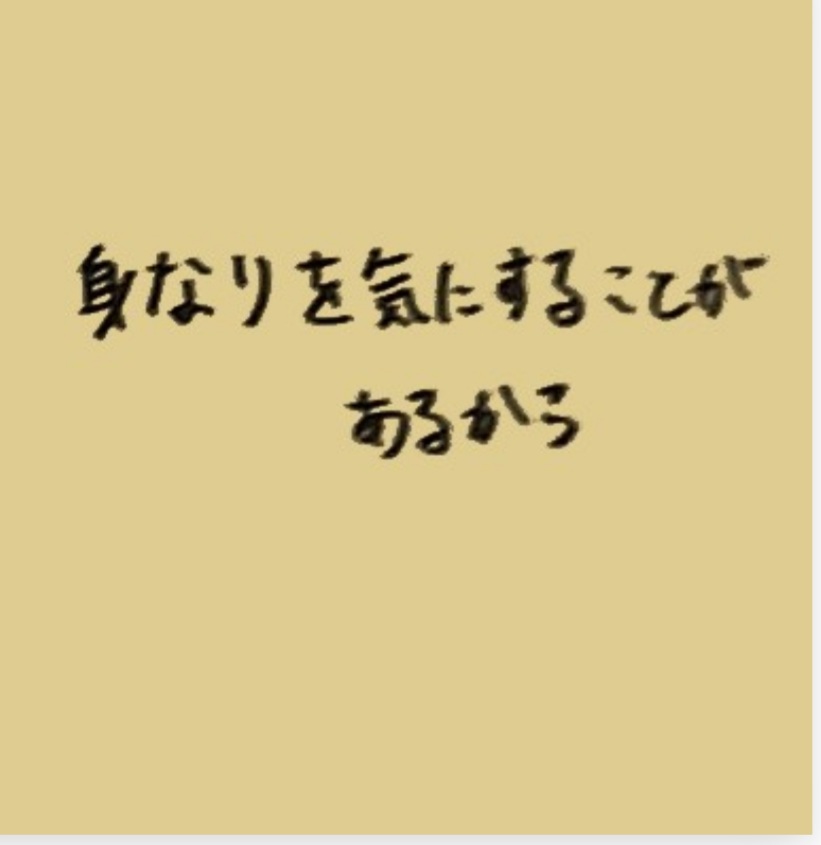 身なりを気にすることが
あるから